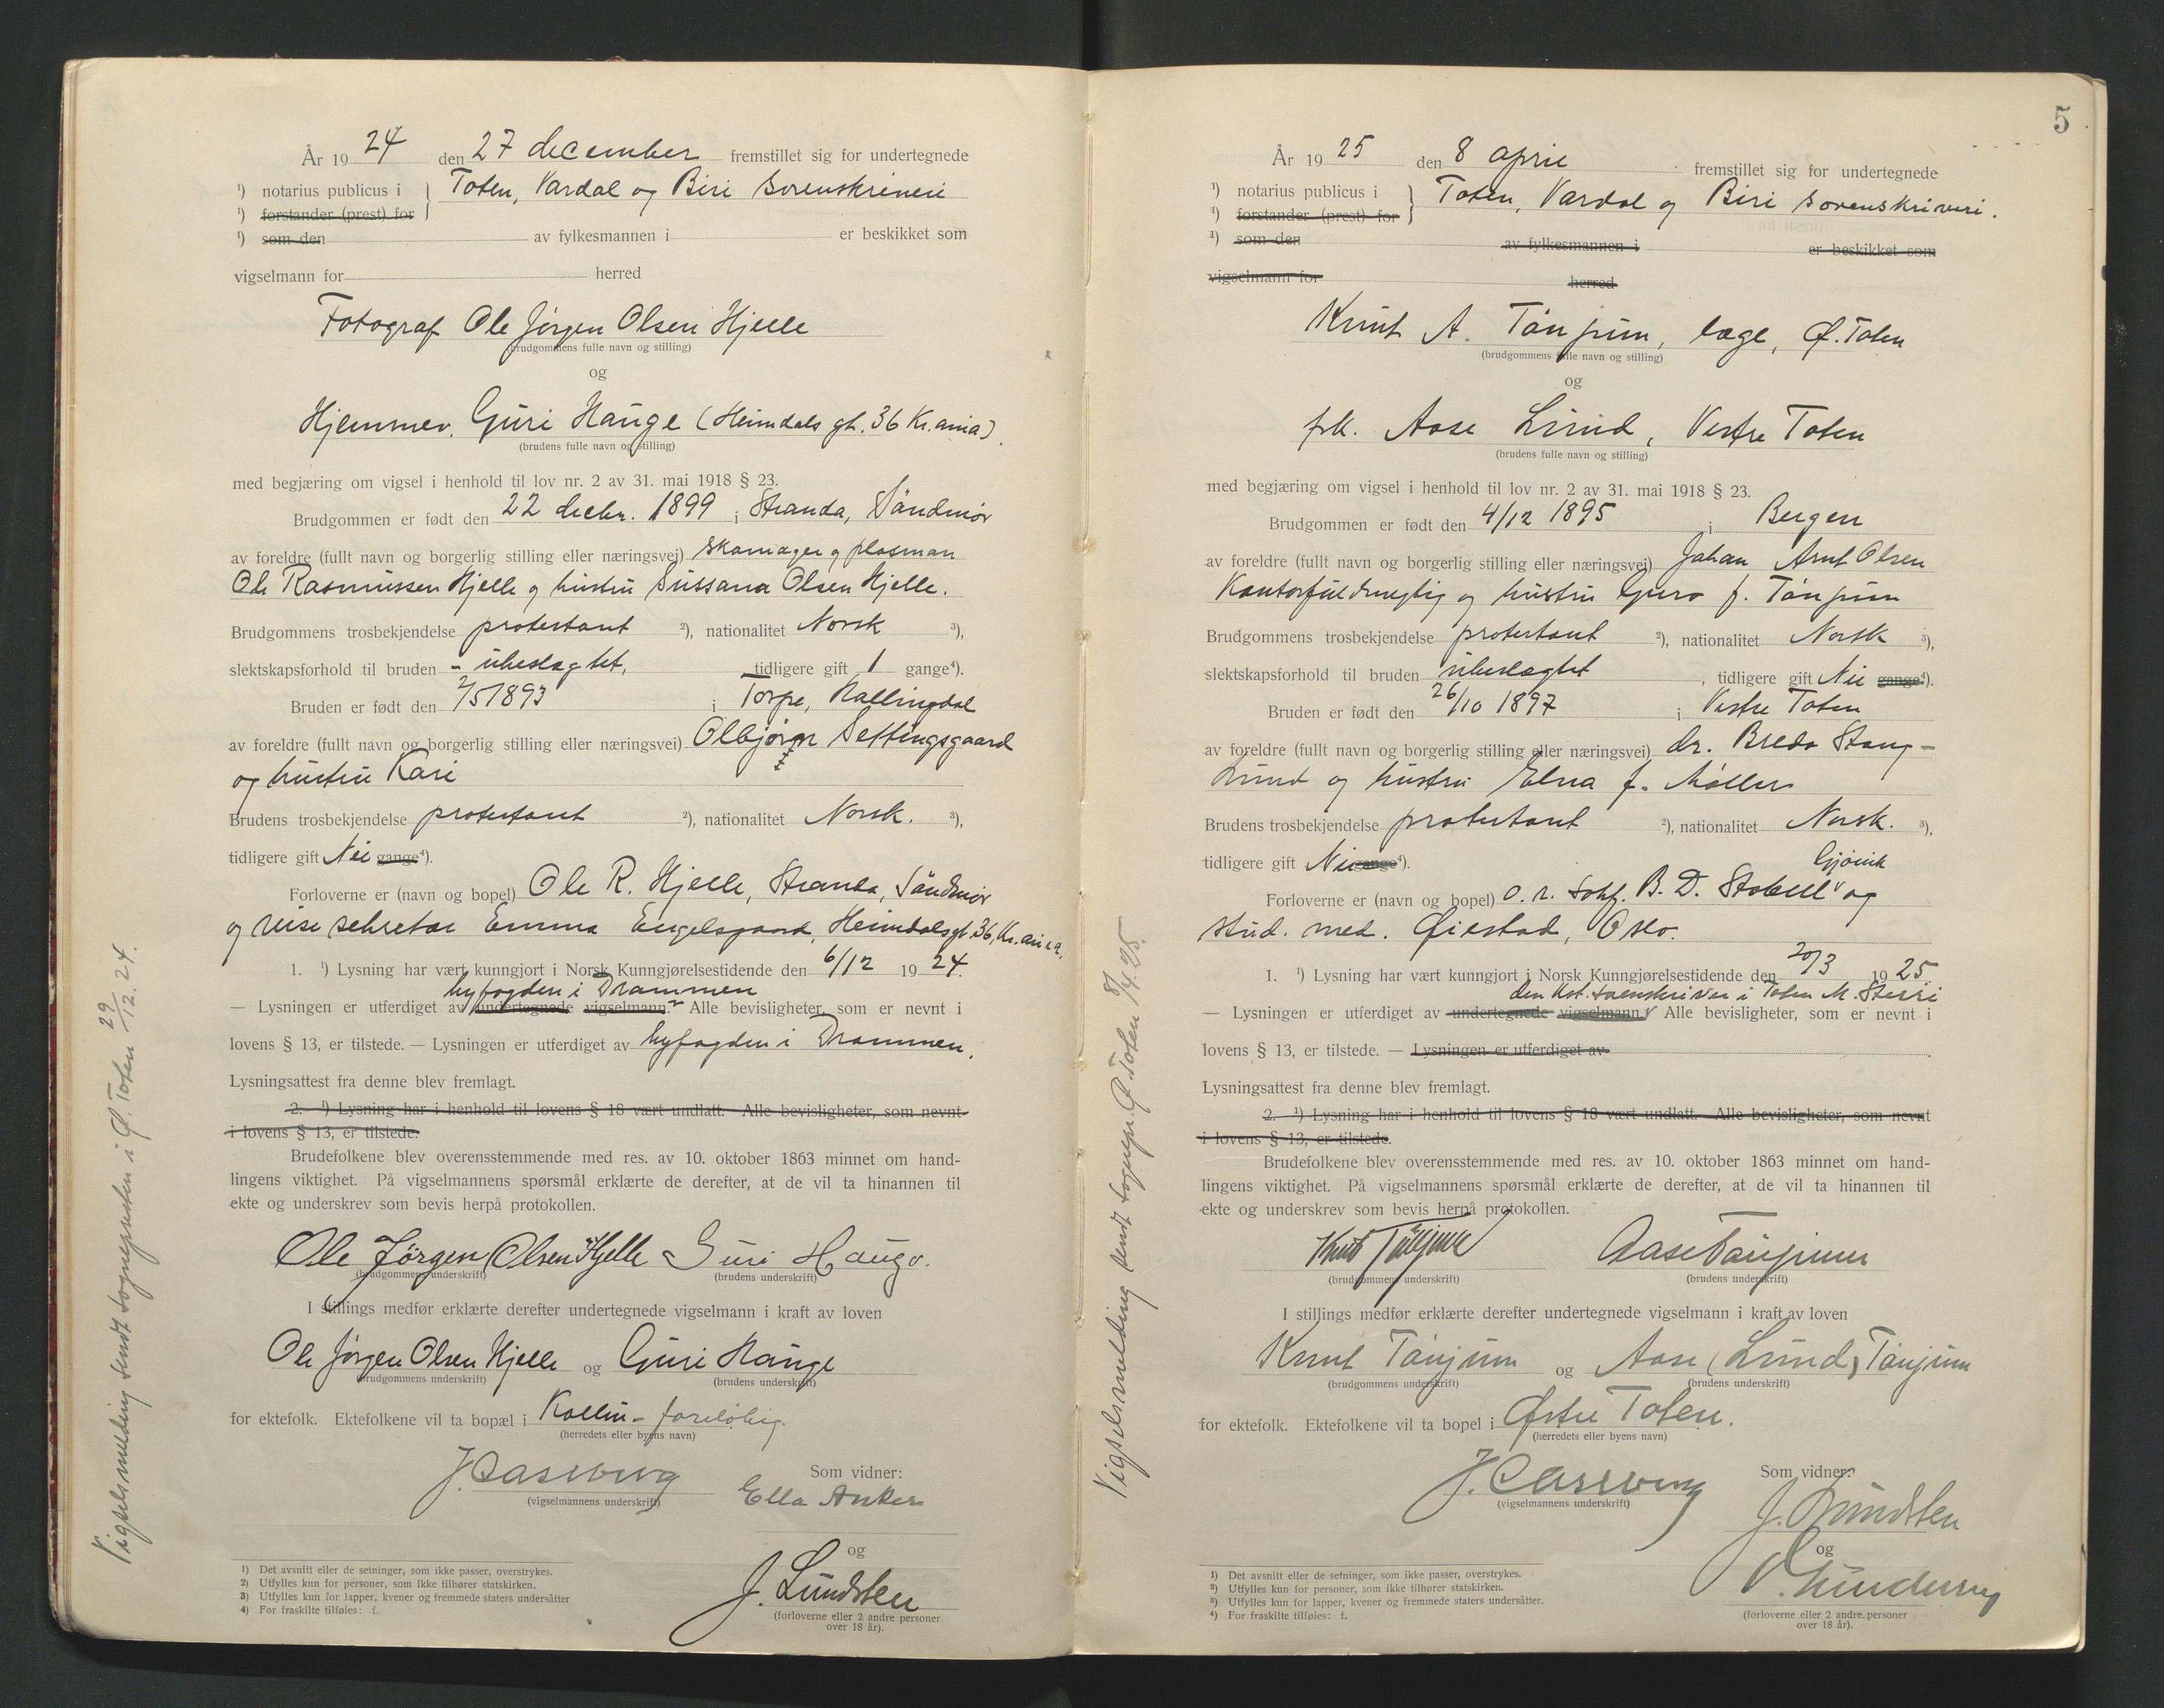 År 19 24 den 27 december fremstillet sig for undertegnede
¹) notarius publicus i } Toten, Vardal og Biri Sorenskriveri
¹) forstander (prest) for
¹) som den av fylkesmannen i er beskikket som
vigselmann for herred
Fotograf Ole Jörgen Olsen Hjelle
(brudgommens fulle navn og stilling)
og
Hjemmev. Guri Hauge (Heimdals gt. 36 Kr.ania).
(brudens fulle navn og stilling)
med begjæring om vigsel i henhold til lov nr. 2 av 31. mai 1918 § 23.
Brudgommen er født den 22 decbr. 1899 i Stranda, Söndmör
av foreldre (fullt navn og borgerlig stilling eller næringsvei) skomager og plasman
Ole Rasmussen Hjelle og hustru Sussana Olsen Hjelle.
Brudgommens trosbekjendelse protestant ²), nationalitet Norsk ³),
slektskapsforhold til bruden - ubeslægtet, tidligere gift 1 gange⁴).
Bruden er født den 2/5 1893 i Torpe, Hallingdal
av foreldre (fullt navn og borgerlig stilling eller næringsvei) Olbjörn Settingsgaard
og hustru Kari
Brudens trosbekjendelse protestant ²), nationalitet Norsk. ³),
tidligere gift Nei gange⁴).
Forloverne er (navn og bopel) Ole R. Hjelle, Stranda, Söndmör
og reise sekretær Emma Engelsgaard, Heimdalsgt. 36, Kr.ania,
1. ¹) Lysning har vært kunngjort i Norsk Kunngjørelsestidende den 6/12 19 24.
byfogden i Drammen
— Lysningen er utferdiget av undertegnede vigselmann. Alle bevisligheter, som er nevnt i
lovens § 13, er tilstede. — Lysningen er utferdiget av byfogden i Drammen.
Lysningsattest fra denne blev fremlagt.
2. ¹) Lysning har i henhold til lovens § 18 vært undlatt. Alle bevisligheter, som nevnt
i lovens § 13, er tilstede.
Brudefolkene blev overensstemmende med res. av 10. oktober 1863 minnet om hand-
lingens viktighet. På vigselmannens spørsmål erklærte de derefter, at de vil ta hinannen til
ekte og underskrev som bevis herpå protokollen.
Ole Jörgen Olsen Hjelle Guri Hauge.
(brudgommens underskrift) (brudens underskrift)
I stillings medfør erklærte derefter undertegnede vigselmann i kraft av loven
Ole Jörgen Olsen Hjelle og Guri Hauge
(brudgommens underskrift) (brudens underskrift)
for ektefolk. Ektefolkene vil ta bopæl i Kolbu - forelöbig.
(herredets eller byens navn)
Som vidner:
Ella Anker
(vigselmannens underskrift)
og
J. Lundsten
(forloverne eller 2 andre personer
over 18 år).
1) Det avsnitt eller de setninger, som ikke passer, overstrykes.
2) Utfylles kun for personer, som ikke tilhører statskirken.
3) Utfylles kun for lapper, kvener og fremmede staters undersåtter
4) For fraskilte tilføies: f.
Vigselsmelding sendt sognepresten i Ø. Toten 29/12. 24.
5
År 19 25 den 8 april fremstillet sig for undertegnede
¹) notarius publicus i } Toten, Vardal og Biri sorenskriveri.
¹) forstander (prest) for
¹) som den av fylkesmannen i er beskikket som
vigselmann for herred
Knut A. Tönjum, læge, Ø. Toten
(brudgommens fulle navn og stilling)
og
frk. Aase Lund, Vestre Toten
(brudens fulle navn og stilling)
med begjæring om vigsel i henhold til lov nr. 2 av 31. mai 1918 § 23.
Brudgommen er født den 4/12 1895 i Bergen
av foreldre (fullt navn og borgerlig stilling eller næringsvei) Johan Arnt Olsen
Kontorfuldmegtig og hustru Guro f. Tönjum
Brudgommens trosbekjendelse protestant ²), nationalitet Norsk ³),
slektskapsforhold til bruden ubeslægtet, tidligere gift Nei gange⁴).
Bruden er født den 26/10 1897 i Vestre Toten
av foreldre (fullt navn og borgerlig stilling eller næringsvei) dr. Breda Stang-
Lund og hustru Elna f. Möller
Brudens trosbekjendelse protestant ²), nationalitet Norsk. ³),
tidligere gift Nei gange⁴).
Gjövik
Forloverne er (navn og bopel) o. r. sakf. B. D. Stabell og
stud. med. Øiestad, Oslo.
1. ¹) Lysning har vært kunngjort i Norsk Kunngjørelsestidende den 20/3 19 25
den kst. sorenskriver i Toten M.
— Lysningen er utferdiget av undertegnede vigselmann. Alle bevisligheter, som er nevnt i
lovens § 13, er tilstede. — Lysningen er utferdiget av
Lysningsattest fra denne blev fremlagt.
2. ¹) Lysning har i henhold til lovens § 18 vært undlatt. Alle bevisligheter, som nevnt
i lovens § 13, er tilstede.
Brudefolkene blev overensstemmende med res. av 10. oktober 1863 minnet om hand-
lingens viktighet. På vigselmannens spørsmål erklærte de derefter, at de vil ta hinannen til
ekte og underskrev som bevis herpå protokollen.
Knut Tönjum Aase Tönjum
(brudgommens underskrift) (brudens underskrift)
I stillings medfør erklærte derefter undertegnede vigselmann i kraft av loven
Knut Tönjum og Aase (Lund) Tönjum
(brudgommens underskrift) (brudens underskrift)
for ektefolk. Ektefolkene vil ta bopel i Østre Toten.
(herredets eller byens navn)
Som vidner:
(vigselmannens underskrift)
J. Lundsten
og
(forloverne eller 2 andre personer
over 18 år).
1) Det avsnitt eller de setninger, som ikke passer, overstrykes.
²) Utfylles kun for personer, som ikke tilhører statskirken.
³) Utfylles kun for lapper, kvener og fremmede staters undersåtter.
⁴) For fraskilte tilføies: f.
Vigselsmelding sendt sognepr. Ø. Toten 8/4. 25.